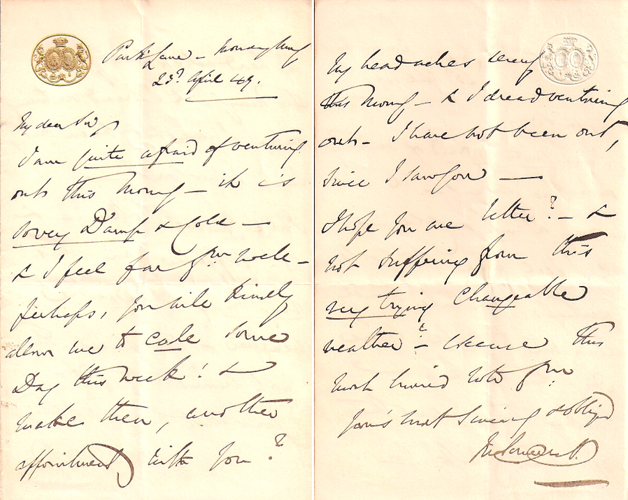 Park Lane - Monday Morng
23d April 49.
My dear Sir,
I am quite afraid of venturing
out this Morng - it is
so very Damp & Cold -
& I feel far fm well -
Perhaps, you will kindly
allow me to call some
Day this week! &
make then, another
appointment with you?
My head aches very
this Morng - & I dread venturing
out - I have not been out,
since I saw you -
I hope you are better? - &
not suffering from this
very trying Changeable
weather? - excuse this
most hurried note fm
your's most sincerely & obliged